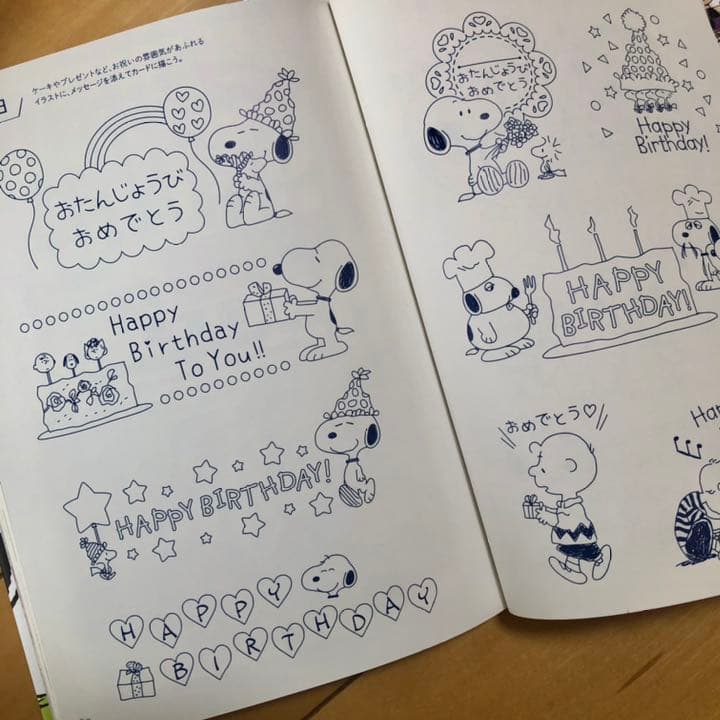 ケーキやプレゼントなど、お祝いの雰囲気があふれる
イラストに、メッセージを添えてカードに描こう。
おたんじょうび
おめでとう
Happy
Birthday
To You!!
HAPPY BIRTHDAY!
HAPPY
BIRTHDAY
おたんじょうび
おめでとう
Happy
Birthday!
HAPPY
BIRTHDAY!
おめでとう♡